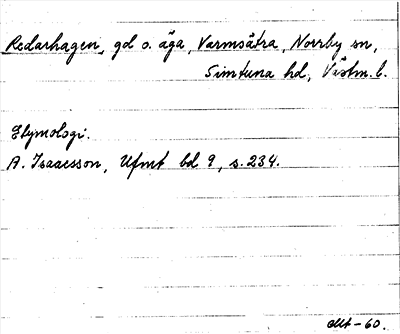 Redarhagen, gd o. äga, Varmsätra, Norrby sn,
Simtuna hd, Västm. l.
Etymologi.
A. Isaacsson, Ufmt bd 9, s. 234.
-60.